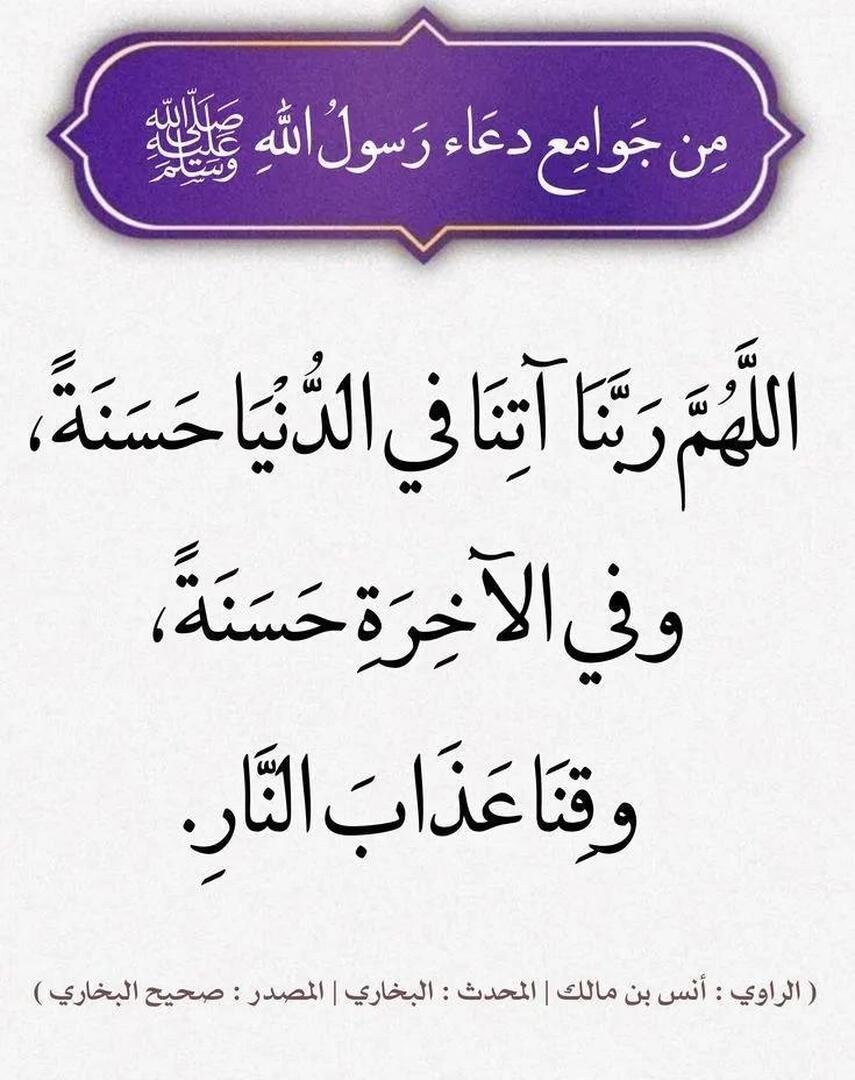 مِن جَوامِع دعَاء رَسولُ اللهِ ﷺ
اللَّهُمَّ رَبَّنَا آتِنَا في الدُّنْيَا حَسَنَةً،
وفي الآخِرَةِ حَسَنَةً،
وقِنَا عَذَابَ النَّارِ.
( الراوي : أنس بن مالك | المحدث : البخاري | المصدر : صحيح البخاري )